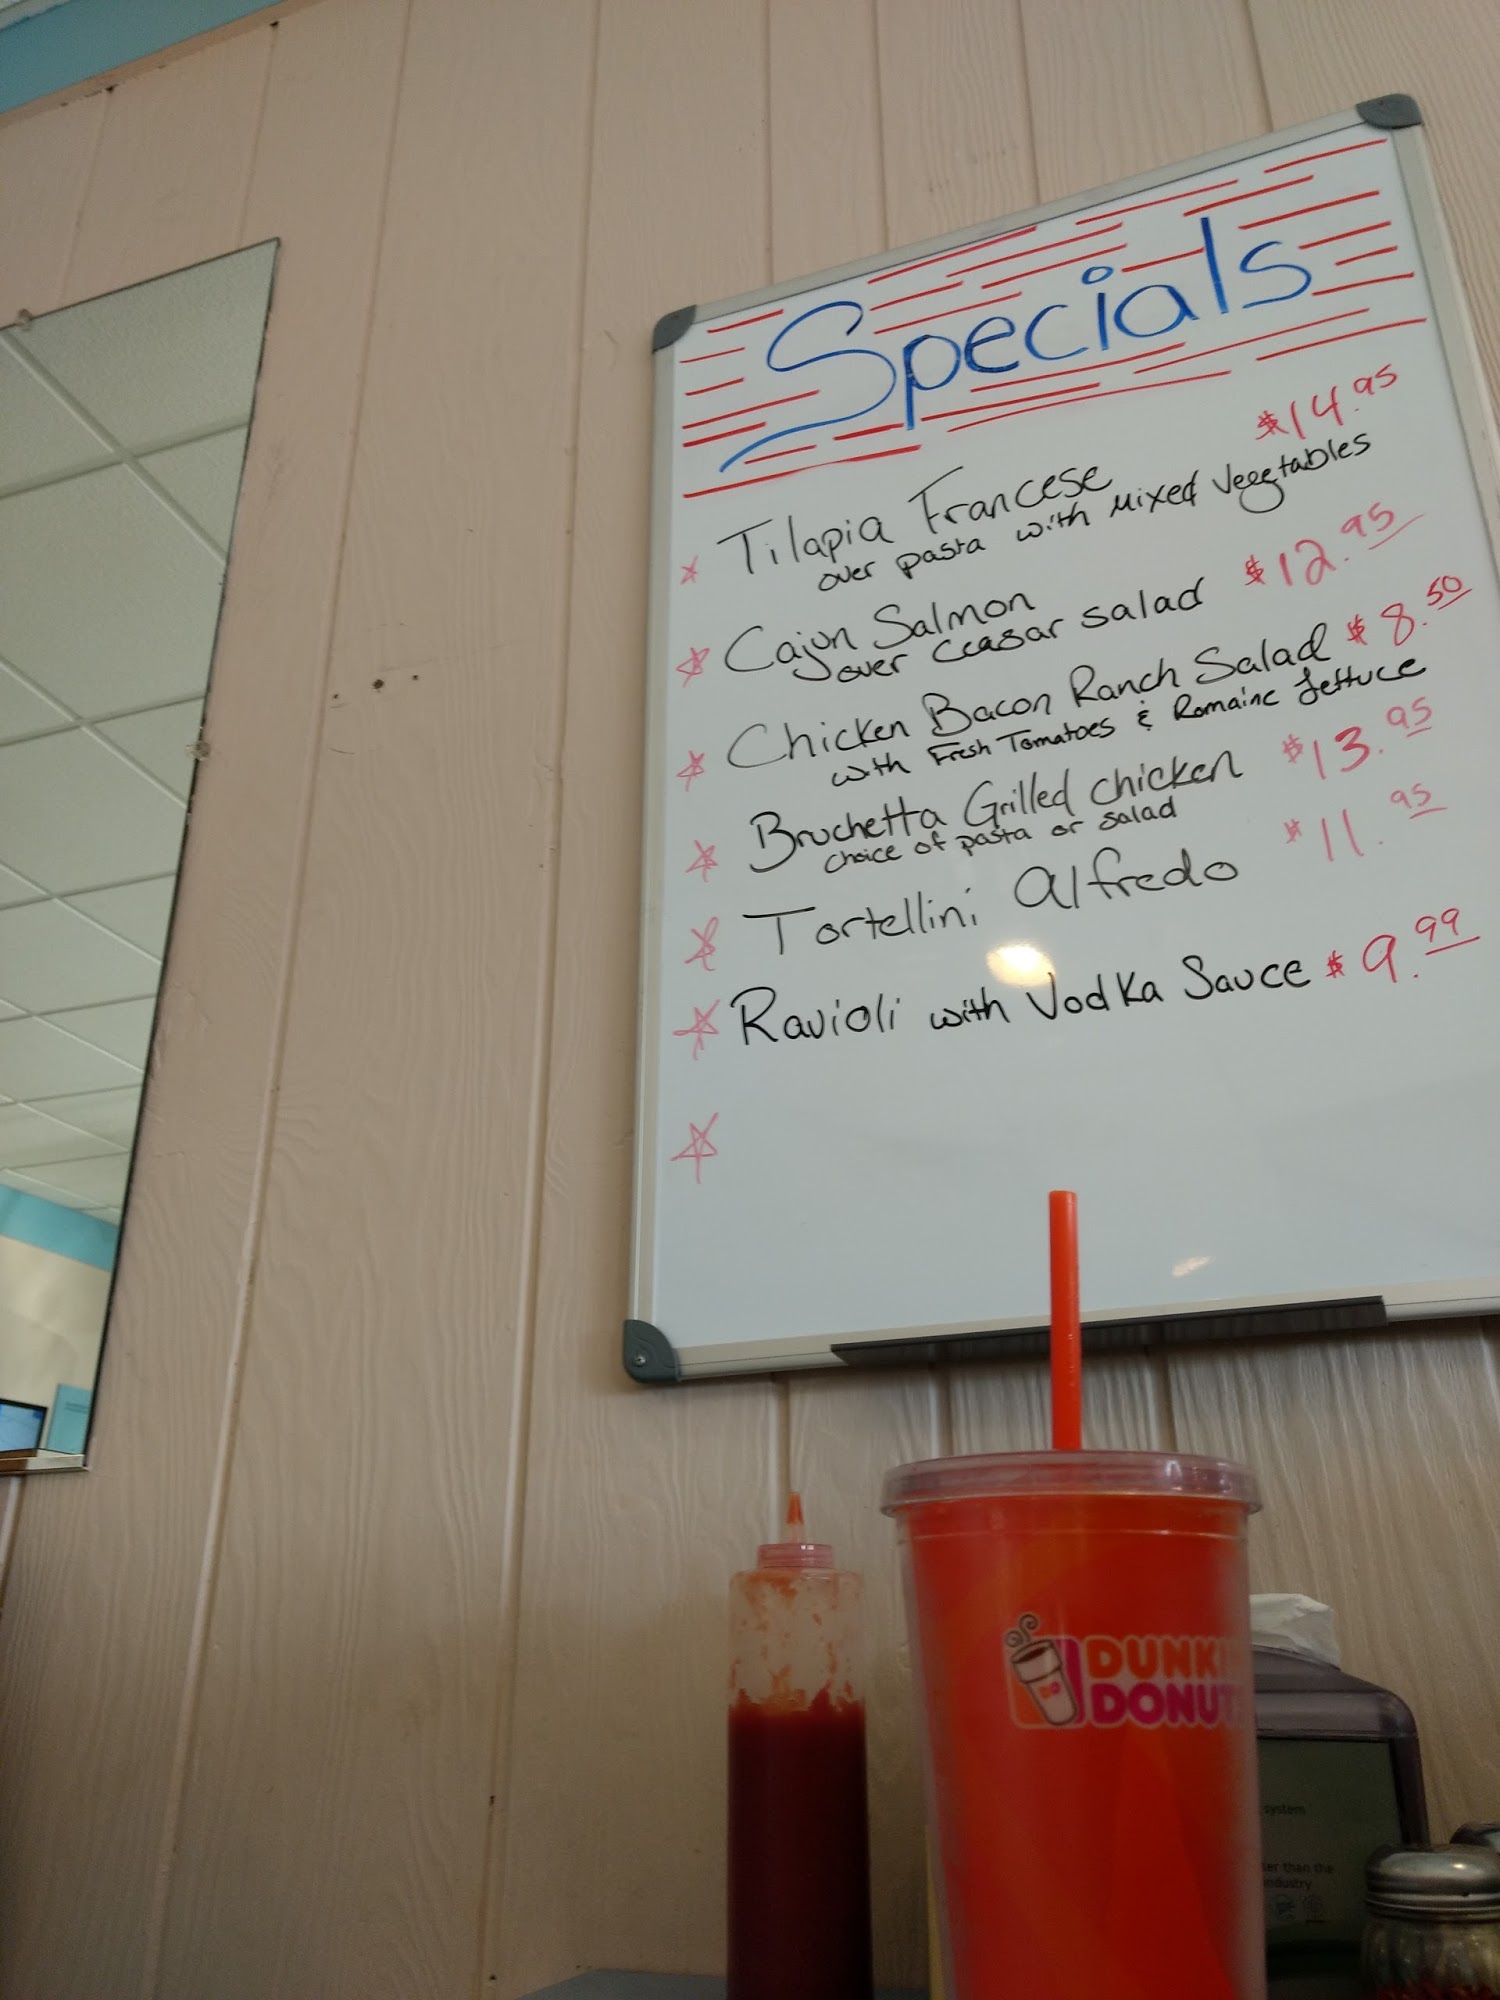 Specials
$14.95
Tilapia Francese
over pasta with Mixed Vegetables
Cajun Salmon
over Ceasar salad $12.95
Chicken Bacon Ranch Salad $8.50
with Fresh Tomatoes & Romaine Lettuce
Bruchetta Grilled chicken $13.95
choice of pasta or salad
Tortellini Alfredo $11.95
Ravioli with Vodka Sauce $9.99
DUNKI
DONUT
system
than the
industry